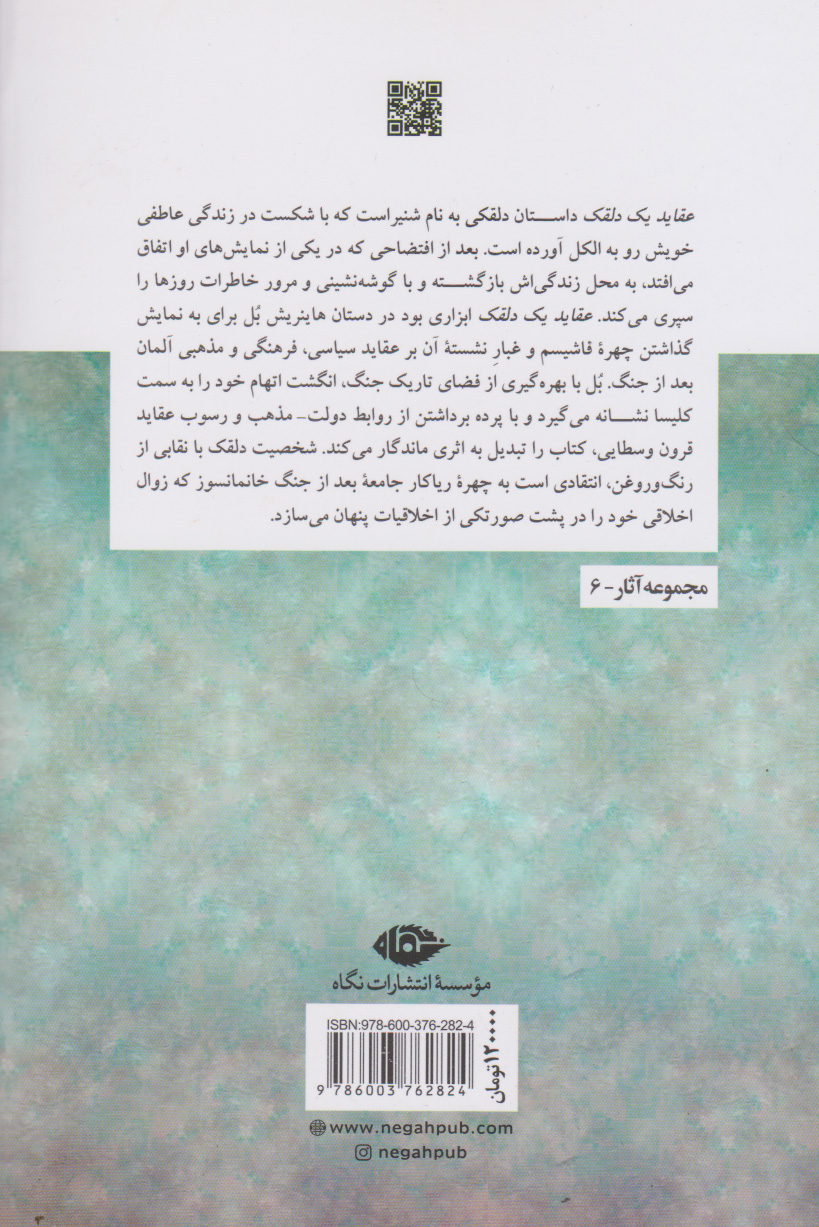 عقاید یک دلقک داستان دلقکی به نام شنیراست که با شکست در زندگی عاطفی
خویش رو به الکل آورده است. بعد از افتضاحی که در یکی از نمایش‌های او اتفاق
می‌افتد، به محل زندگی‌اش بازگشته و با گوشه‌نشینی و مرور خاطرات روزها را
سپری می‌کند. عقاید یک دلقک ابزاری بود در دستان هاینریش بُل برای به نمایش
گذاشتن چهرهٔ فاشیسم و غبارِ نشستهٔ آن بر عقاید سیاسی، فرهنگی و مذهبی آلمان
بعد از جنگ. بُل با بهره‌گیری از فضای تاریک جنگ، انگشت اتهام خود را به سمت
کلیسا نشانه می‌گیرد و با پرده برداشتن از روابط دولت- مذهب و رسوب عقاید
قرون وسطایی، کتاب را تبدیل به اثری ماندگار می‌کند. شخصیت دلقک با نقابی از
رنگ‌وروغن، انتقادی است به چهرهٔ ریاکار جامعهٔ بعد از جنگ خانمانسوز که زوال
اخلاقی خود را در پشت صورتکی از اخلاقیات پنهان می‌سازد.
مجموعه آثار - ۶
نگاه
مؤسسهٔ انتشارات نگاه
ISBN:978-600-376-282-4
9 786003 762824
۱۲۰۰۰۰ تومان
www.negahpub.com
negahpub